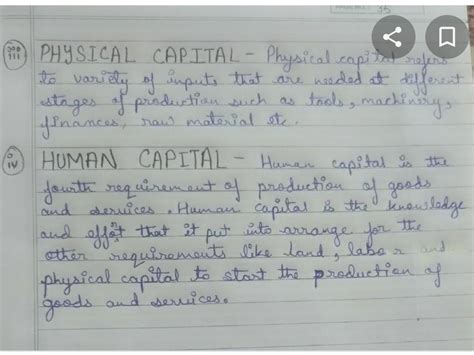 iii PHYSICAL CAPITAL - Physical capital refers
to variety of inputs that are needed at different
stages of production such as tools, machinery,
finances, raw material etc.
iv HUMAN CAPITAL - Human capital is the
fourth requirement of production of goods
and services. Human capital is the knowledge
and effort that it put into arrange for the
other requirements like land, labor and
physical capital to start the production of
goods and services.